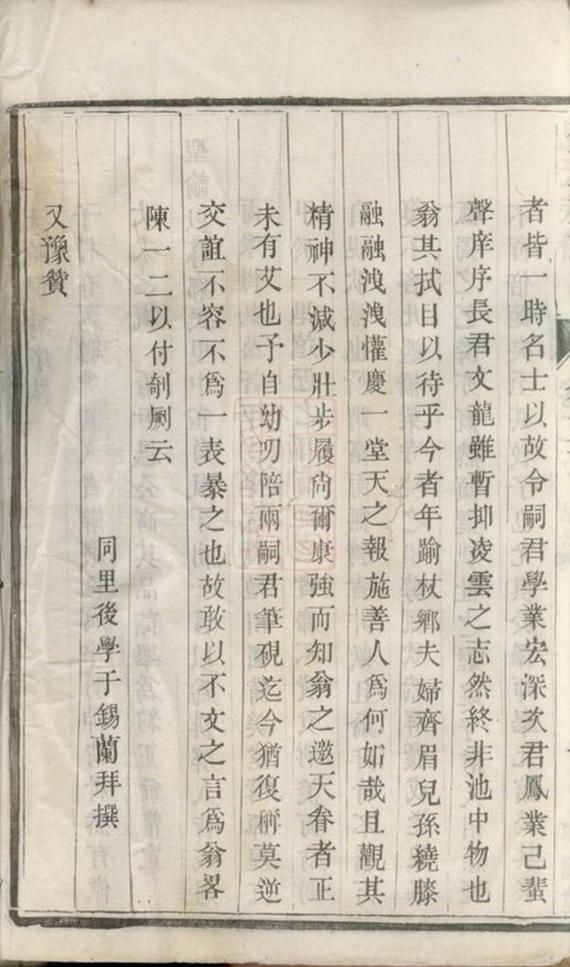 者皆一時名士以故令嗣君學業宏深次君鳳業己蜚
聲庠序長君文龍雖暫抑凌雲之志然終非池中物也
翁其拭目以待乎今者年踰杖鄉夫婦齊眉兒孫繞膝
融融洩洩懽慶一堂天之報施善人為何如哉且觀其
精神不減少壯步履尚爾康強而知翁之邀天眷者正
未有艾也予自幼叨陪兩嗣君筆硯迄今猶復稱莫逆
交誼不容不為一表暴之也故敢以不文之言為翁畧
陳一二以付剞劂云
同里後學于錫蘭拜撰
又豫贊